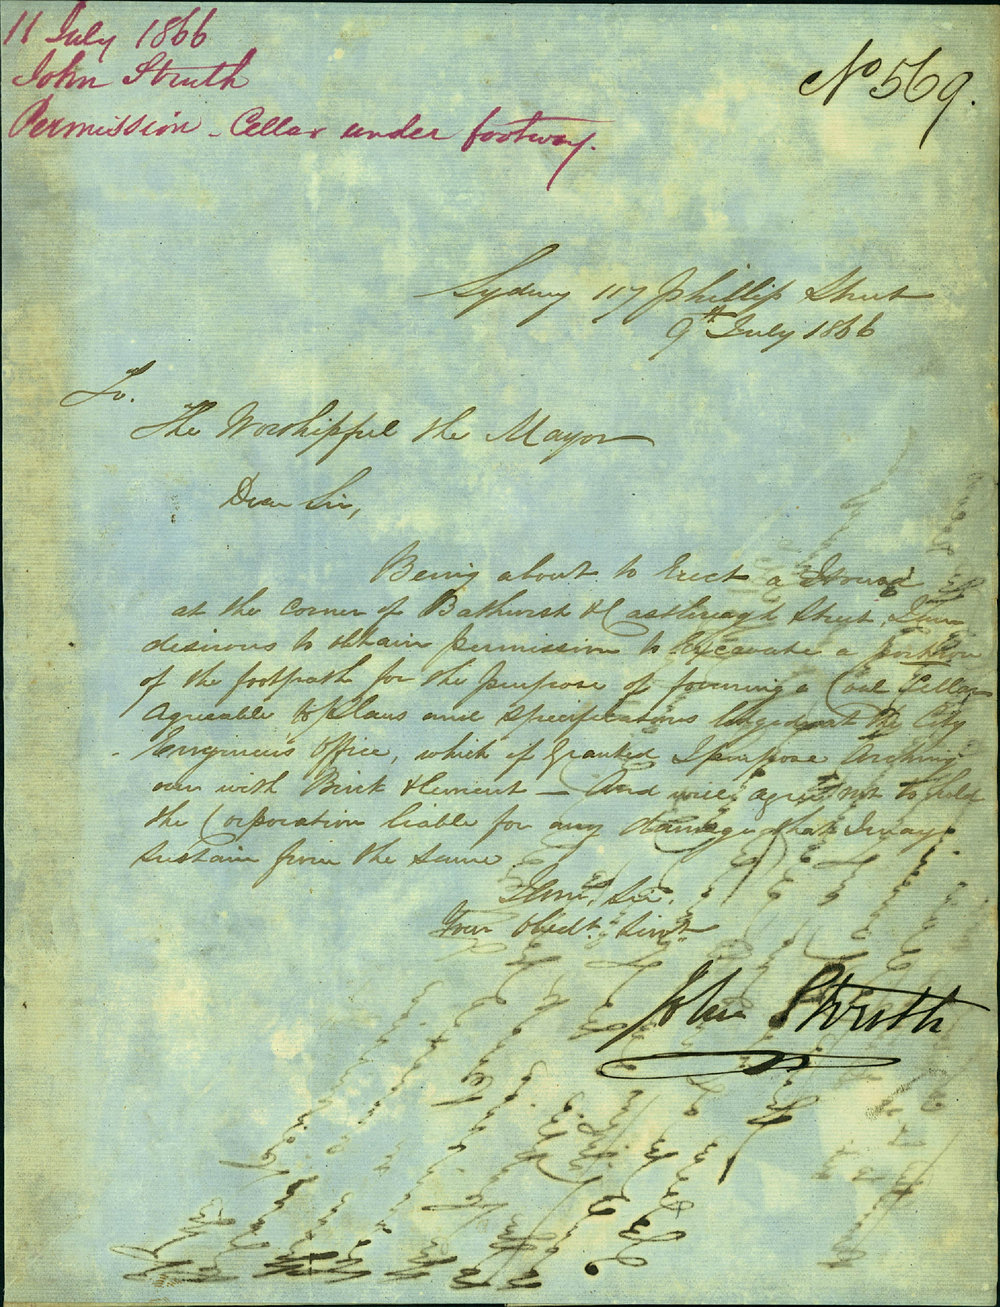 11 July 1866
John Struth
Permission - Cellar under footway.
No 569.
Sydney 117 Phillip Street
9th July 1866
To.
The Worshipful the Mayor
Dear Sir,
Being about to Erect a House
at the Corner of Bathurst & Castlereagh Street, I am
desirous to obtain permission to Excavate a portion
of the footpath for the purpose of forming a Coal Cellar
Agreable to plans and Specifications lodged at the City
Engineers Office, which if Granted I purpose Arching
over with Brick & Cement — And will agree not to hold
the Corporation liable for any damage that I may
sustain from the same
I am, Sir.
Your Obedt. Servt.
John Struth